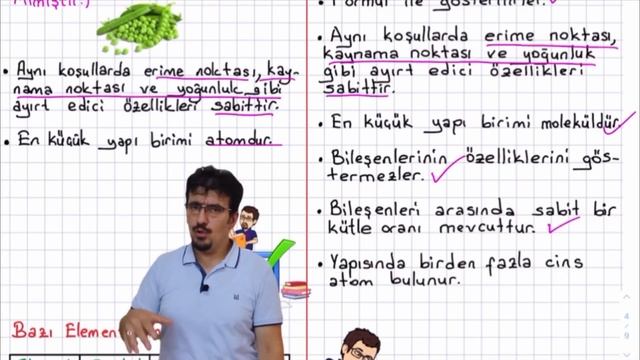 Almıştır.)
• Aynı koşullarda erime noktası, kay-
nama noktası ve yoğunluk gibi
ayırt edici özellikleri sabittir.
• En küçük yapı birimi atomdur.
Bazı Element
• Formül ile gösterilirler.
• Aynı koşullarda erime noktası,
kaynama noktası ve yoğunluk
gibi ayırt edici özellikleri
sabittir.
• En küçük yapı birimi moleküldür.
• Bileşenlerinin özelliklerini gös-
termezler.
• Bileşenleri arasında sabit bir
kütle oranı mevcuttur.
• Yapısında birden fazla cins
atom bulunur.
4/9